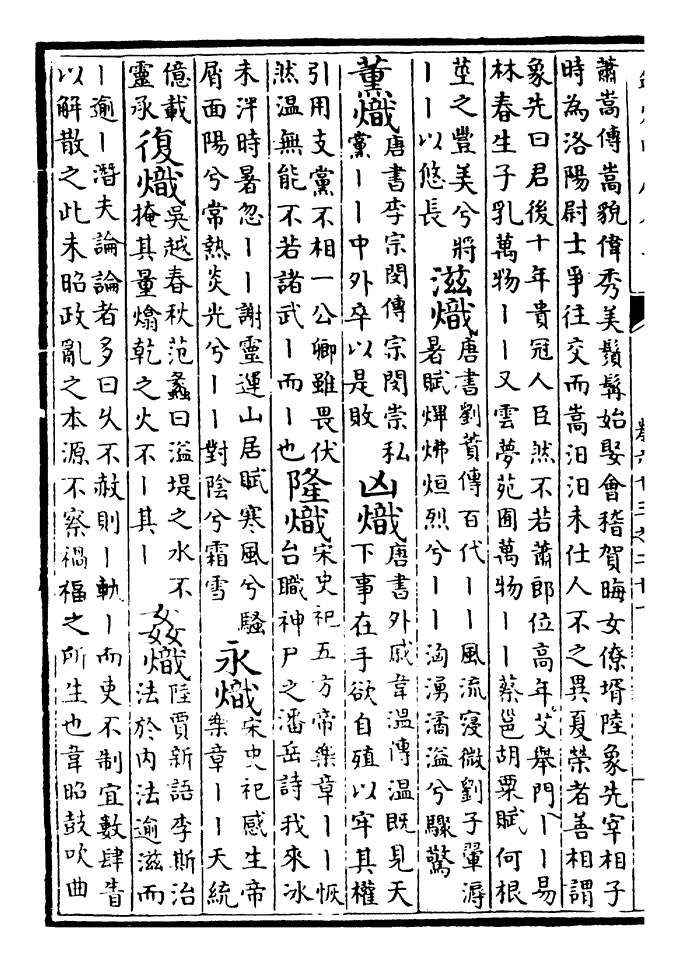 蕭嵩傳嵩貌偉秀美鬚髯始娶會稽賀晦女僚壻陸象先宰相子
時為洛陽尉士爭往交而嵩汨汨未仕人不之異夏榮者善相謂
象先曰君後十年貴冠人臣然不若蕭郎位高年艾舉門丨丨易
林春生子乳萬物丨丨又雲夢苑囿萬物丨丨蔡邕胡栗賦何根
莖之豐美兮將
丨丨以悠長
滋熾
唐書劉蕡傳百代丨丨風流寖微劉子翬溽
暑賦燀炥烜烈兮丨丨㴠湧潏溢兮驟驚
薰熾
唐書李宗閔傳宗閔崇私
黨丨丨中外卒以是敗
凶熾
唐書外戚韋温傳温既見天
下事在手欲自殖以牢其權
引用支黨不相一公卿雖畏伏
然温無能不若諸武丨而丨也
隆熾
宋史祀五方帝樂章丨丨恢
台職神尸之潘岳詩我來冰
未泮時暑忽丨丨謝靈運山居賦寒風兮騷
屑面陽兮常熱炎光兮丨丨對陰兮霜雪
永熾
宋史祀感生帝
樂章丨丨天統
億載
靈承
復熾
吳越春秋范蠡曰溢堤之水不
掩其量熻乾之火不丨其丨
姦熾
陸賈新語李斯治
法於内法逾滋而
丨逾丨潛夫論論者多曰乆不赦則丨軌丨而吏不制宜數肆眚
以解散之此未昭政亂之本源不察禍福之所生也韋昭鼓吹曲